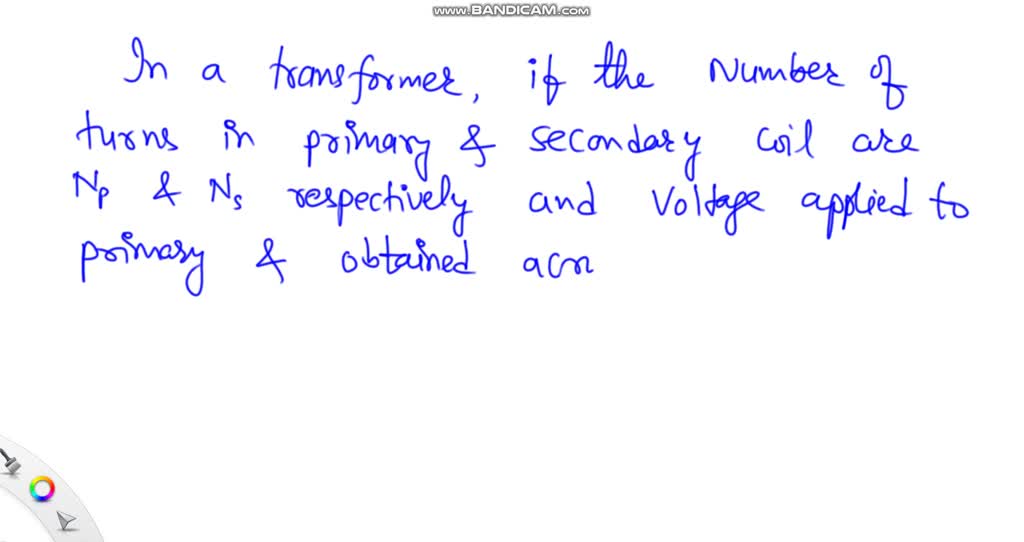 www.BANDICAM.com
In a transformer, if the Number of
turns in primary & secondary coil are
Np & Ns respectively and Voltage applied to
primary & obtained acr